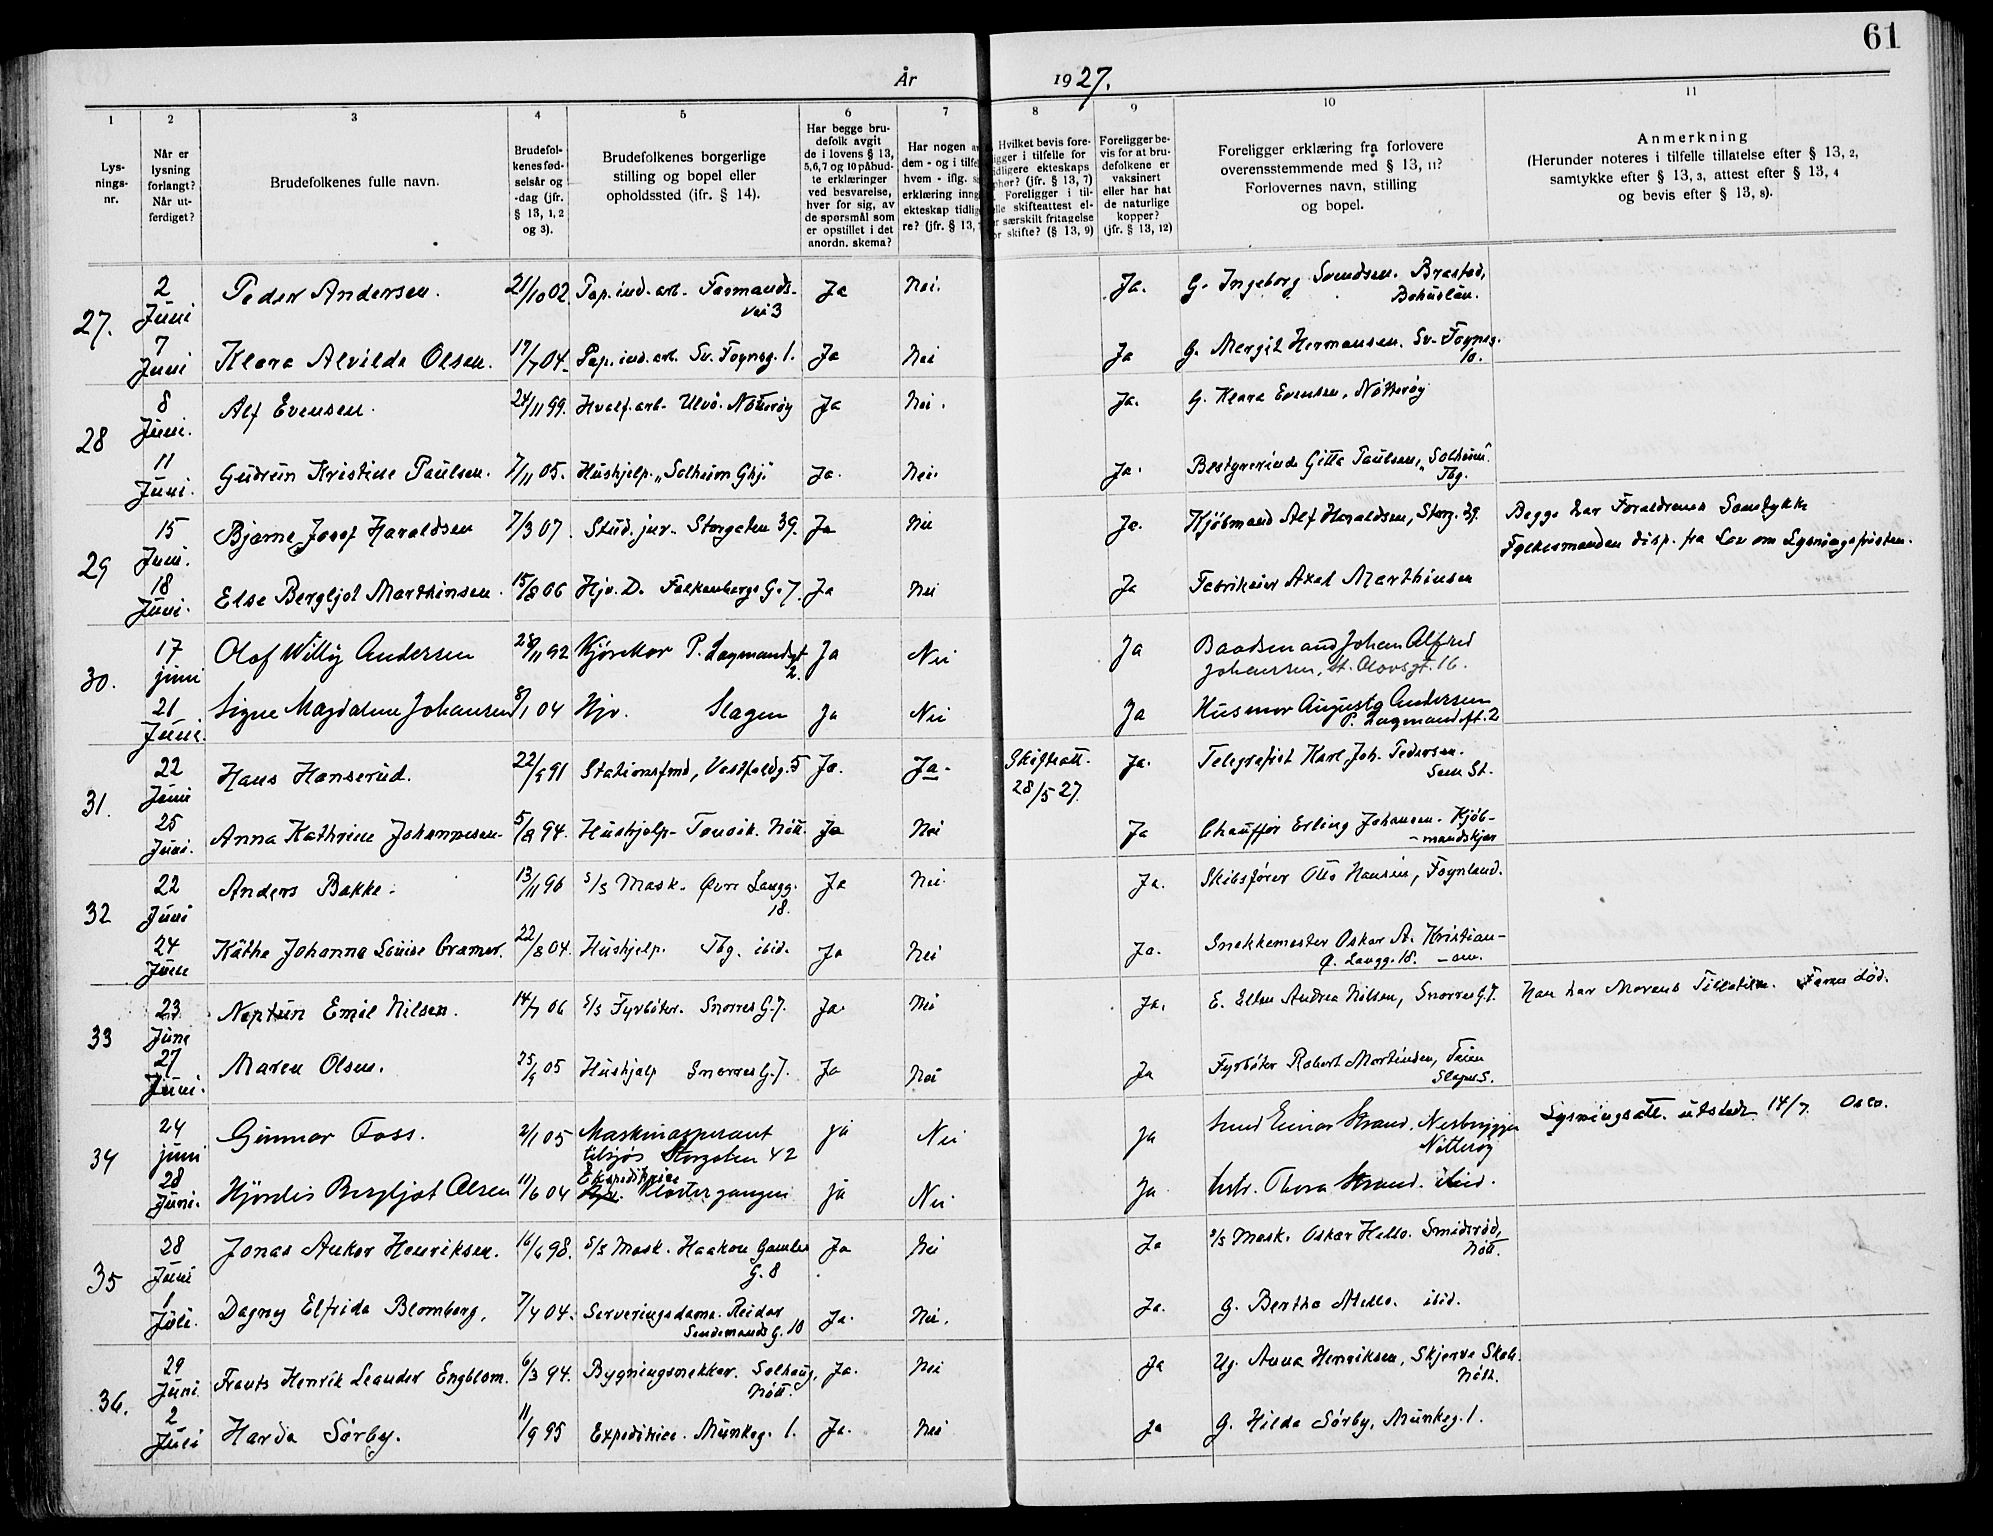 61
År 1927.
1 2 3 4 5 6 7 8 9 10 11
Lysningsnr.
Når er lysning forlangt? Når utferdiget?
Brudefolkenes fulle navn.
Brudefolkenes fødselsår og -dag (jfr. § 13, 1, 2 og 3).
Brudefolkenes borgerlige stilling og bopel eller opholdssted (jfr. § 14).
Har begge brudefolk avgit de i lovens § 13, 5, 6, 7 og 10 påbudte erklæringer ved besvarelse, hver for sig, av de spørsmål som er opstillet i det anordn. skema?
Har nogen a
dem - og i tilfe
hvem - iflg. s
erklæring inng
ekteskap tidlig
re? (jfr. § 13,
Hvilket bevis fore-
igger i tilfelle for
idligere ekteskaps
phør? (jfr. § 13, 7)
Foreligger i til-
elle skifteattest el-
r særskilt fritagelse
or skifte? (§ 13, 9)
Foreligger bevis for at brudefolkene er vaksinert eller har hat de naturlige kopper? (jfr. § 13, 12)
Foreligger erklæring fra forlovere overensstemmende med § 13, 11? Forlovernes navn, stilling og bopel.
Anmerkning
(Herunder noteres i tilfelle tillatelse efter § 13, 2, samtykke efter § 13, 3, attest efter § 13, 4 og bevis efter § 13, 8).
27. 2 Juni Peder Andersen. 21/10 02. Pap. ind. arb. Farmands- vei 3 Ja Nei. Ja. G. Ingeborg Svendsen. Brastad, Bohuslän.
7 Juni Klara Alvilda Olsen. 17/7 04. Pap. ind. arb. Sv. Foynsg. 1. Ja Nei Ja G. Margit Hermansen. Sv. Foynsg. 10.
28 8 Juni. Alf Evensen. 24/11 99. Hvalf. arb. Ulvö. Nötterøy Ja Nei. Ja. G. Klara Evensen, Nötterøy
11 Juni. Gudrun Kristine Paulsen. 7/11 05. Hushjelp. "Solheim Ghj." Ja. Nei. Ja. Bestyrerinde Gitta Paulsen, "Solheim". Tbg.
29 15 Juni. Bjarne Josef Haraldsen 7/3 07. Stud. jur. Storgaten 39. Ja Nei Ja. Kjöbmand Alf Haraldsen, Storg. 39. Begge har Foreldrenes Samtykke
Fylkesmanden disp. fra Lov om Lysningsfristen.
18 Juni. Else Bergljot Marthinsen. 15/8 06 Hjv. D. Falkenbergs G. 7. Ja Nei Ja Fabrikeier Axel Marthinsen
30. 17 juni Olaf Willy Andersen 28/11 92 Kjörekar P. Lagmandsgt 2. Ja Nei Ja Baadsmand Johan Alfred Johansen, St. Olavsgt. 16.
21 Juni. Signe Magdalene Johansen 8/1 04 Hjv. Slagen Ja Nei Ja Husmor Augusta Andersen P. Lagmandsgt. 2
31. 22 Juni Hans Hanserud. 22/9 91 Stationsfmd, Vestfoldg. 5 Ja. Ja. Skifteatt. 28/5 27. Ja. Telegrafist Karl Joh. Pedersen. Sem St.
25 Juni. Anna Kathrine Johannesen. 5/8 94. Hushjelp. Tenvik. Nött. Ja Nei Ja Chauffør Erling Johansen. Kjöb- -mandskjær
32 22 Juni Anders Bakke. 13/11 96 s/s Mask. Øvre Langg. 18. Ja Nei. Ja. Skibsfører Otto Hansen, Foynland.
24 Juni Käthe Johanna Louise Cramer. 22/8 04. Hushjelp. Tbg. ibid. Ja Nei Ja. Snekkemester Oskar A. Kristian- -sen. Ø. Langg. 18.
33 23 Juni Neptun Emil Nilsen. 14/7 06 s/s Fyrböter. Snorres G. 7. Ja. Nei Ja. E. Ellen Andrea Nilsen, Snorres G. 7. Han har Morens Tillatelse. Faren död.
27 Juni. Maren Olsen. 25/9 05 Hushjelp Snorres G. 7. Ja Nei Ja Fyrböter Robert Martinsen, Teien Slagen S.
34 24 juni Gunnar Foss. 2/1 05 Maskinaspirant tilsjös Storgaten 42 ja Nei Ja Einar Strand. Nesbryggen Nötterøy Lysningsatt. utstedt 14/7. Oslo.
28 Juni. Hjördis Bergljot Olsen 11/6 04 Ekspeditrice Klostergangen ja Nei Ja Thora Strand. ibid.
35 28 Juni Jonas Anker Henriksen. 16/6 98. s/s Mask. Haakon Gamles G. 8 Ja Nei Ja s/s Mask. Oskar Mello. Smidsröd, Nött.
1 Juli. Dagny Elfrida Blomberg. 7/4 04. Serveringsdame. Reidar Sendemands G. 10 Ja. Nei. Ja. G. Bertha Mello. ibid.
36. 29 Juni. Frants Henrik Leander Engblom. 6/3 94. Bygningsnekker. Solhaug, Nött. Ja. Nei Ja Ug. Anna Henriksen, Skjerve Skole. Nött.
2 Juli Harda Sörby. 11/9 95 Expeditrice. Munkeg. 1. Ja. Nei Ja G. Hilda Sörby, Munkeg. 1.